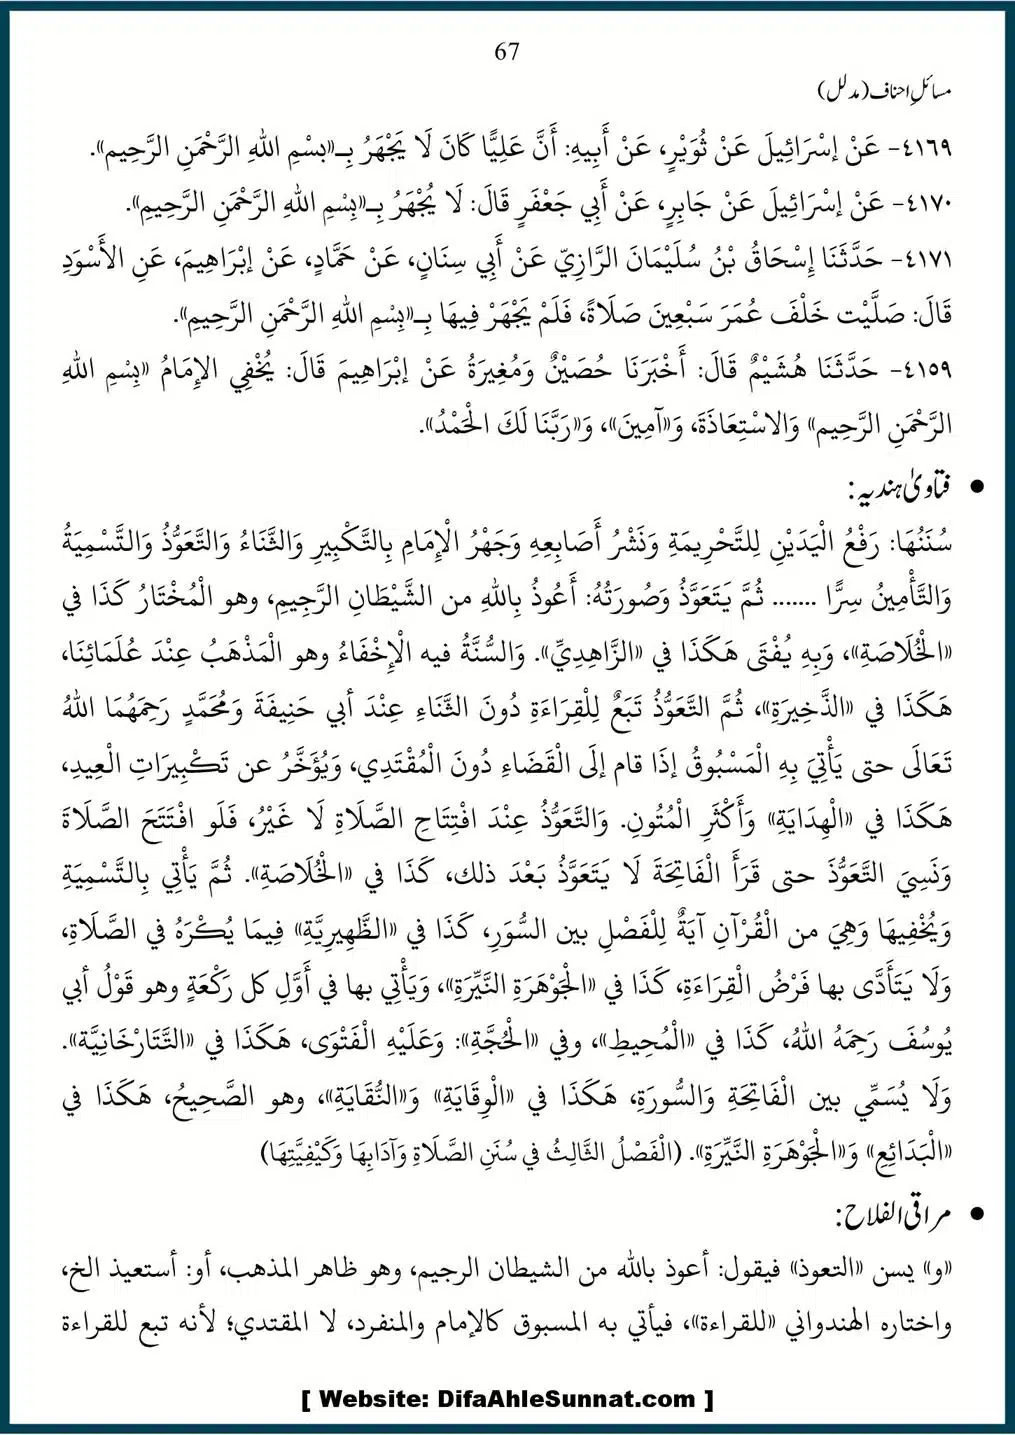 67
مسائلِ احناف (مدلل)
٤١٦٩- عَنْ إسْرَائِيلَ عَنْ ثُوَيْرٍ، عَنْ أَبِيهِ: أَنَّ عَلِيًّا كَانَ لَا يَجْهَرُ بِـ«بسْمِ اللهِ الرَّحْمَنِ الرَّحِيم».
٤١٧٠- عَنْ إسْرَائِيلَ عَنْ جَابِرٍ، عَنْ أَبِي جَعْفَرٍ قَالَ: لَا يُجْهَرُ بِـ«بِسْمِ اللهِ الرَّحْمَنِ الرَّحِيمِ».
٤١٧١- حَدَّثَنَا إِسْحَاقُ بْنُ سُلَيْمَانَ الرَّازِيّ عَنْ أَبِي سِنَانٍ، عَنْ حَمَّادٍ، عَنْ إبْرَاهِيمَ، عَنِ الأَسْوَدِ
قَالَ: صَلَّيْت خَلْفَ عُمَرَ سَبْعِينَ صَلَاةً، فَلَمْ يَجْهَرْ فِيهَا بِـ«بِسْمِ اللهِ الرَّحْمَنِ الرَّحِيمِ».
٤١٥٩- حَدَّثَنَا هُشَيْمٌ قَالَ: أَخْبَرَنَا حُصَيْنٌ وَمُغِيرَةُ عَنْ إبْرَاهِيمَ قَالَ: يُخْفِي الإِمَامُ «بِسْمِ اللهِ
الرَّحْمَنِ الرَّحِيم» وَالاسْتِعَاذَةَ، وَ«آمِينَ»، وَ«رَبَّنَا لَكَ الْحَمْدُ».
• فتاویٰ ہندیہ:
سُنَنُهَا: رَفْعُ الْيَدَيْنِ لِلتَّحْرِيمَةِ وَنَشْرُ أَصَابِعِهِ وَجَهْرُ الْإِمَامِ بِالتَّكْبِيرِ وَالثَّنَاءُ وَالتَّعَوُّذُ وَالتَّسْمِيَةُ
وَالتَّأْمِينُ سِرًّا ....... ثُمَّ يَتَعَوَّذُ وَصُورَتُهُ: أَعُوذُ بِاللهِ من الشَّيْطَانِ الرَّجِيمِ، وهو الْمُخْتَارُ كَذَا في
«الْخُلَاصَةِ»، وَبِهِ يُفْتَى هَكَذَا في «الزَّاهِدِيِّ». وَالسُّنَّةُ فيه الْإِخْفَاءُ وهو الْمَذْهَبُ عِنْدَ عُلَمَائِنَا،
هَكَذَا في «الذَّخِيرَةِ»، ثُمَّ التَّعَوُّذُ تَبَعٌ لِلْقِرَاءَةِ دُونَ الثَّنَاءِ عِنْدَ أبي حَنِيفَةَ وَمُحَمَّدٍ رَحِمَهُمَا اللهُ
تَعَالَى حتى يَأْتِيَ بِهِ الْمَسْبُوقُ إذَا قام إلَى الْقَضَاءِ دُونَ الْمُقْتَدِي، وَيُؤَخَّرُ عن تَكْبِيرَاتِ الْعِيدِ،
هَكَذَا في «الْهِدَايَةِ» وَأَكْثَرِ الْمُتُونِ. وَالتَّعَوُّذُ عِنْدَ افْتِتَاحِ الصَّلَاةِ لَا غَيْرُ، فَلَو افْتَتَحَ الصَّلَاةَ
وَنَسِيَ التَّعَوُّذَ حتى قَرَأَ الْفَاتِحَةَ لَا يَتَعَوَّذُ بَعْدَ ذلك، كَذَا في «الْخُلَاصَةِ». ثُمَّ يَأْتِي بِالتَّسْمِيَةِ
وَيُخْفِيهَا وَهِيَ من الْقُرْآنِ آيَةٌ لِلْفَصْلِ بين السُّوَرِ، كَذَا في «الظَّهِيرِيَّةِ» فِيمَا يُكْرَهُ في الصَّلَاةِ،
وَلَا يَتَأَدَّى بها فَرْضُ الْقِرَاءَةِ، كَذَا في «الْجَوْهَرَةِ النَّيِّرَةِ»، وَيَأْتِي بها في أَوَّلِ كل رَكْعَةٍ وهو قَوْلُ أبي
يُوسُفَ رَحِمَهُ اللهُ، كَذَا في «الْمُحِيطِ»، وفي «الْحُجَّةِ»: وَعَلَيْهِ الْفَتْوَى، هَكَذَا في «التَّتَارْخَانِيَّة».
وَلَا يُسَمِّي بين الْفَاتِحَةِ وَالسُّورَةِ، هَكَذَا في «الْوِقَايَةِ» وَ«النُّقَايَةِ»، وهو الصَّحِيحُ، هَكَذَا في
«الْبَدَائِعِ» وَ«الْجَوْهَرَةِ النَّيِّرَةِ». (الْفَصْلُ الثَّالِثُ في سُنَنِ الصَّلَاةِ وَآدَابِهَا وَكَيْفِيَّتِهَا)
• مراقی الفلاح:
«و» يسن «التعوذ» فيقول: أعوذ بالله من الشيطان الرجيم، وهو ظاهر المذهب، أو: أستعيذ الخ،
واختاره الهندواني «للقراءة»، فيأتي به المسبوق كالإمام والمنفرد، لا المقتدي؛ لأنه تبع للقراءة
[ Website: DifaAhleSunnat.com ]